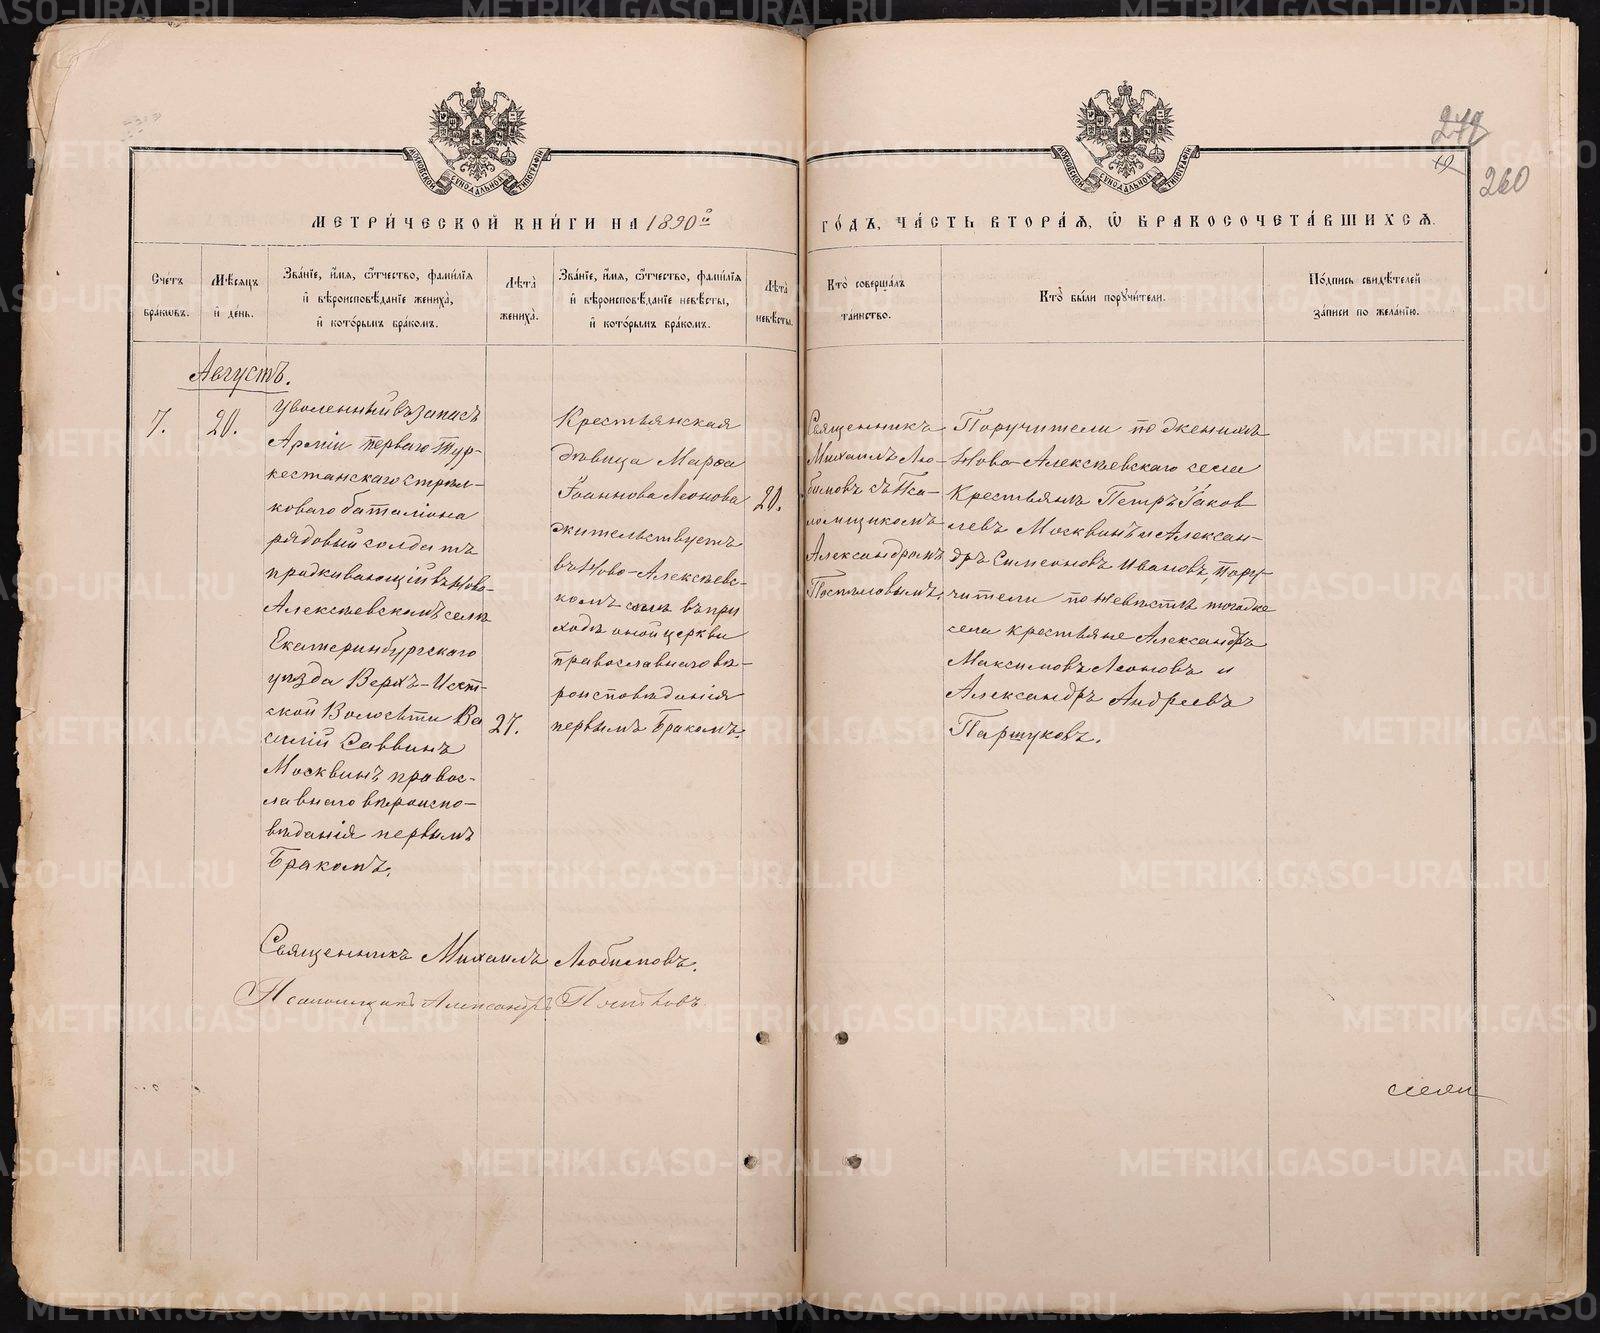 272
260
МОСКОВСКОЙ СѴНОДАЛЬНОЙ ТИПОГРАФІИ
МОСКОВСКОЙ СѴНОДАЛЬНОЙ ТИПОГРАФІИ
МЕТРИ́ЧЕСКОЙ КНИ́ГИ НА 1890й
ГО́ДЪ, ЧА́СТЬ ВТОРА́Ѧ, Ѽ БРАКОСОЧЕТА́ВШИХСѦ.
Сче́тъ бра́ковъ.
Мѣ́сяцъ и҆ де́нь.
Зва́нїе, и҆́мѧ, ѻ҆́тчество, фами́лїѧ и҆ вѣроисповѣ́данїе жениха̀, и҆ кото́рымъ бра́комъ.
Лѣта̀ жениха̀.
Зва́нїе, и҆́мѧ, ѻ҆́тчество, фами́лїѧ и҆ вѣроисповѣ́данїе невѣ́сты, и҆ кото́рымъ бра́комъ.
Лѣта̀ невѣ́сты.
Кто̀ соверша́лъ та́инство.
Кто̀ бы́ли поручи́тели.
По́дпись свидѣ́телей за́писи по жела́нїю.
Августъ.
7.
20.
Уволенный въ запасъ
Арміи перваго Тур-
кестанскаго стрѣл-
коваго баталіона
рядовый солдатъ
проживающій въ Ново-
Алексѣевскомъ селѣ
Екатеринбургскаго
уѣзда Верхъ-Исет-
ской Волости Ва
силій Саввинъ
Москвинъ правос-
лавнаго вѣроиспо-
вѣданія первымъ
Бракомъ.
27.
Крестьянская
дѣвица Марѳа
Іоаннова Леонова
жительствуетъ
въ Ново-Алексѣевс-
комъ селѣ въ при
ходѣ оной церкви
православнаго вѣ-
роисповѣданія
первымъ Бракомъ.
20.
Священникъ
Михаилъ Лю-
бимовъ съ Пса-
ломщикомъ
Александромъ
Поспѣловымъ.
Поручители по женихѣ
Ново-Алексѣевскаго села
Крестьянъ Петръ Іаков
левъ Москвинъ и Алексан-
дръ Симеоновъ Ивановъ, пору-
чители по невѣстѣ тогоже
села крестьяне Александръ
Максимовъ Леоновъ и
Александръ Андреевъ
Паршуковъ.
Священникъ Михаилъ Любимовъ.
Псаломщикъ Александръ Поспѣловъ
METRIKI.GASO-URAL.RU